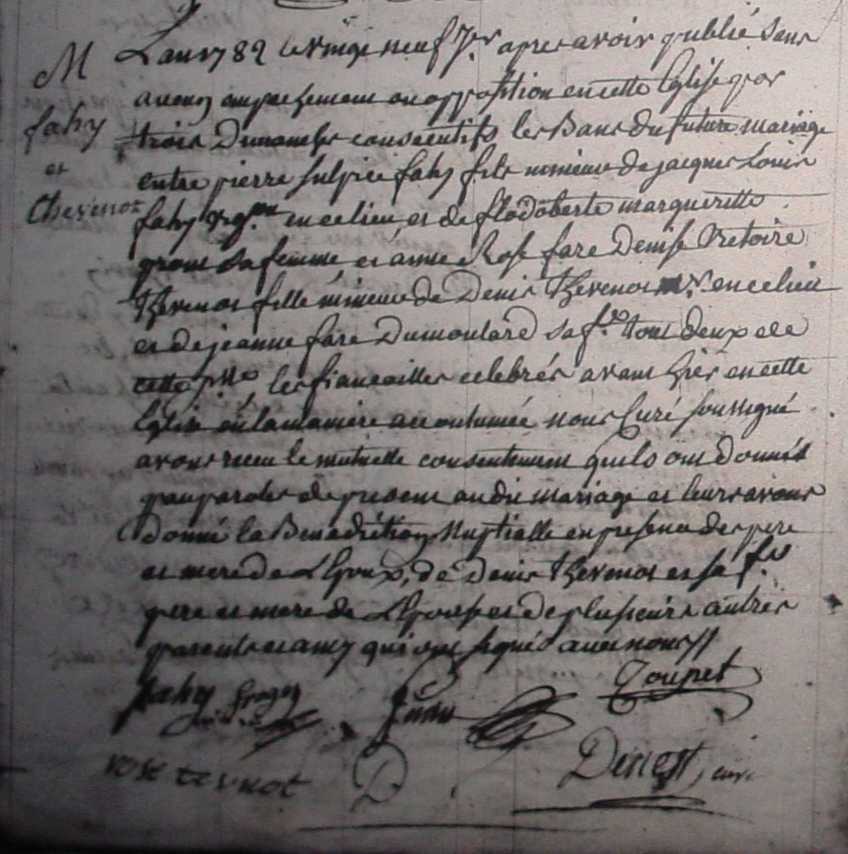 M
fahy
et
Thevenot
L'an 1782 le vingt neuf 7bre apres avoir publié sans
aucun empechement ou opposition en cette Eglise par
trois Dimanche consecutifs les Bans du futur mariage
entre pierre sulpice fahy fils mineur de jacques Louis
fahy en ce lieu et de flodoberte margueritte
sa femme, et anne Rose fare Denise Victoire
thevenot fille mineure de Denis thevenot en ce lieu
et de jeanne fare Dumoulard sa fe tous deux de
cette psse, les fiancailles celebrés avant hier en cette
Eglise en la maniere accoutumée nous Curé soussigné
avons receu le mutuelle consentement quils ont donnés
par paroles de present audit mariage et leurs avons
donné la Benediction Nuptialle en presence des pere
et mere de L'Epoux, de Denis thevenot et sa fe
pere et mere de L'Epouse et de plusieurs autres
parents et amy qui ont signés avec nous //
fahy
Toupet
rose tevnot
D
Denest, curé